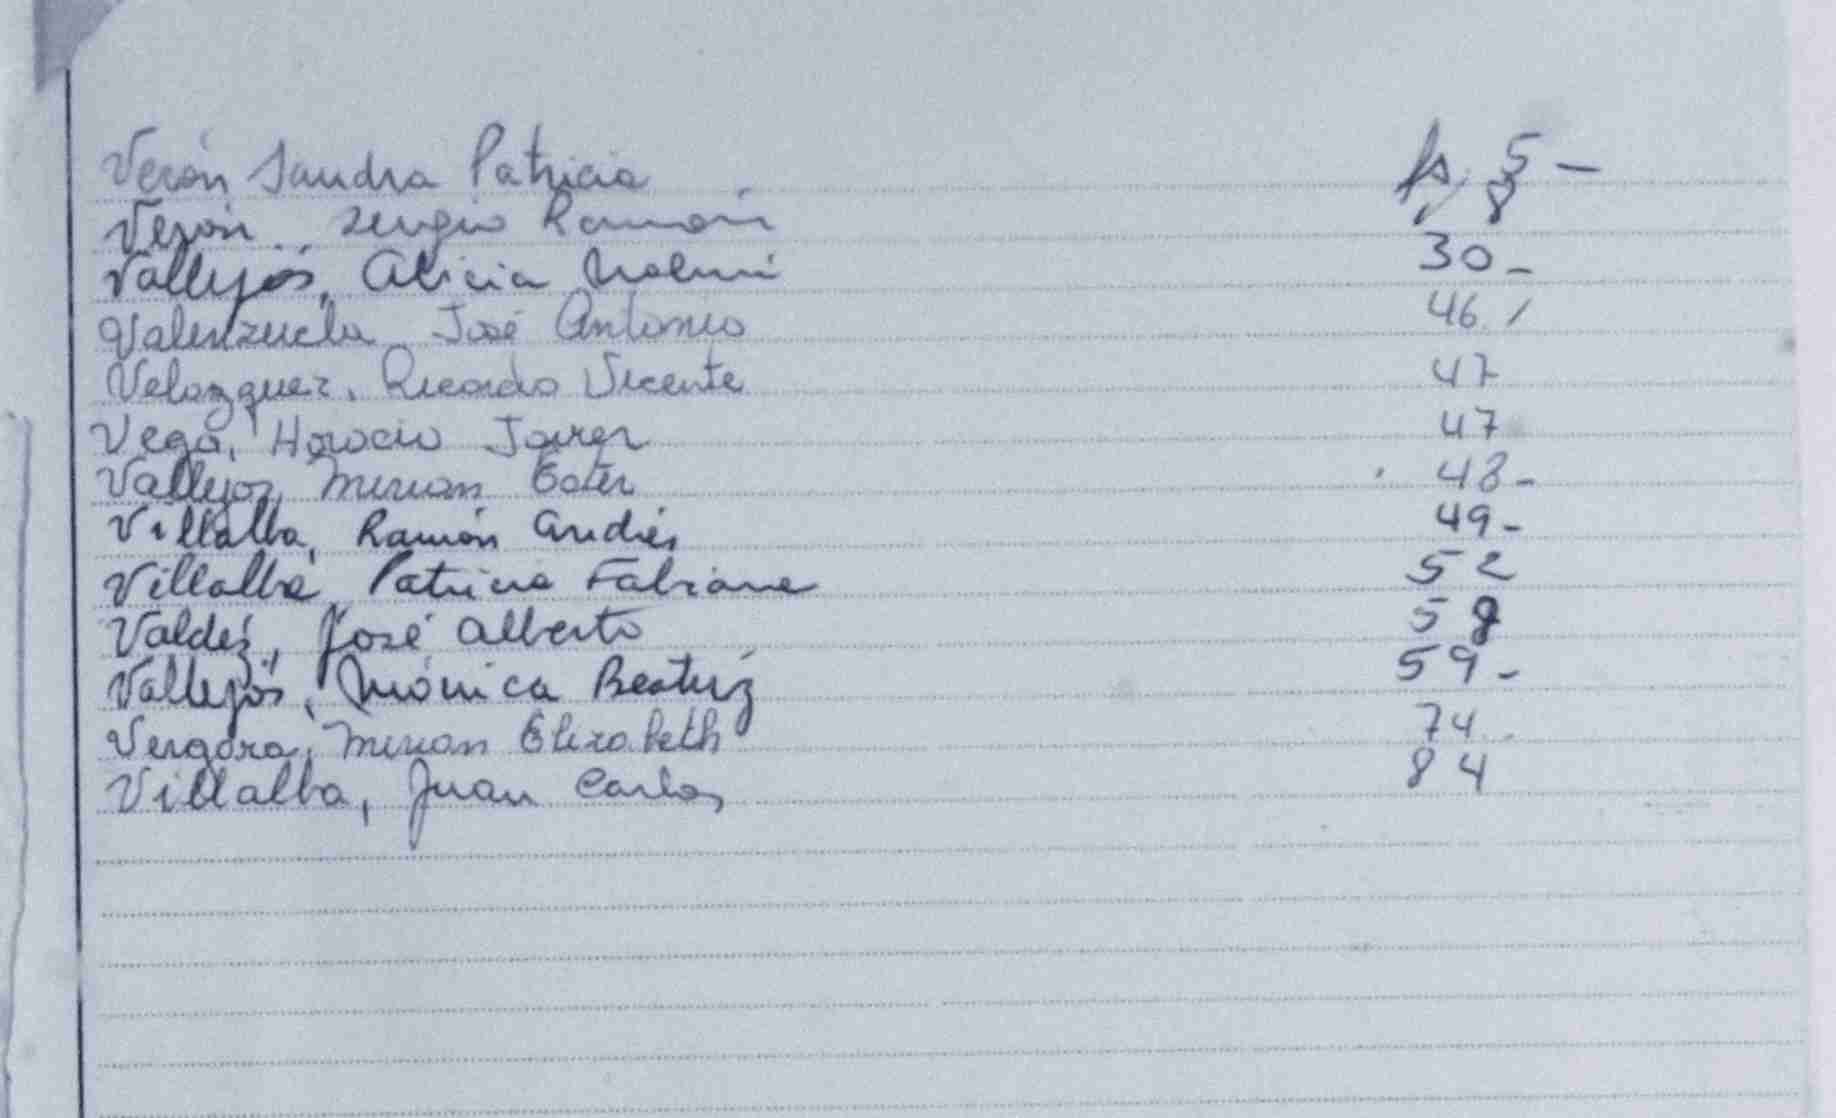 Verón Sandra Patricia fs. 5 -
Verón, Sergio Ramón 8
Vallejos, Alicia Noemí 30 -
Valenzuela José Antonio 46
Velazquez, Ricardo Vicente 47
Vega, Horacio Javier 47
Vallejos, Mirian Ester 48 -
Villalba, Ramón Andrés 49 -
Villalba Patricia Fabiana 52
Valdéz, José Alberto 58
Vallejos, Mónica Beatriz 59 -
Vergara, Mirian Elizabeth 74
Villalba, Juan Carlos 84